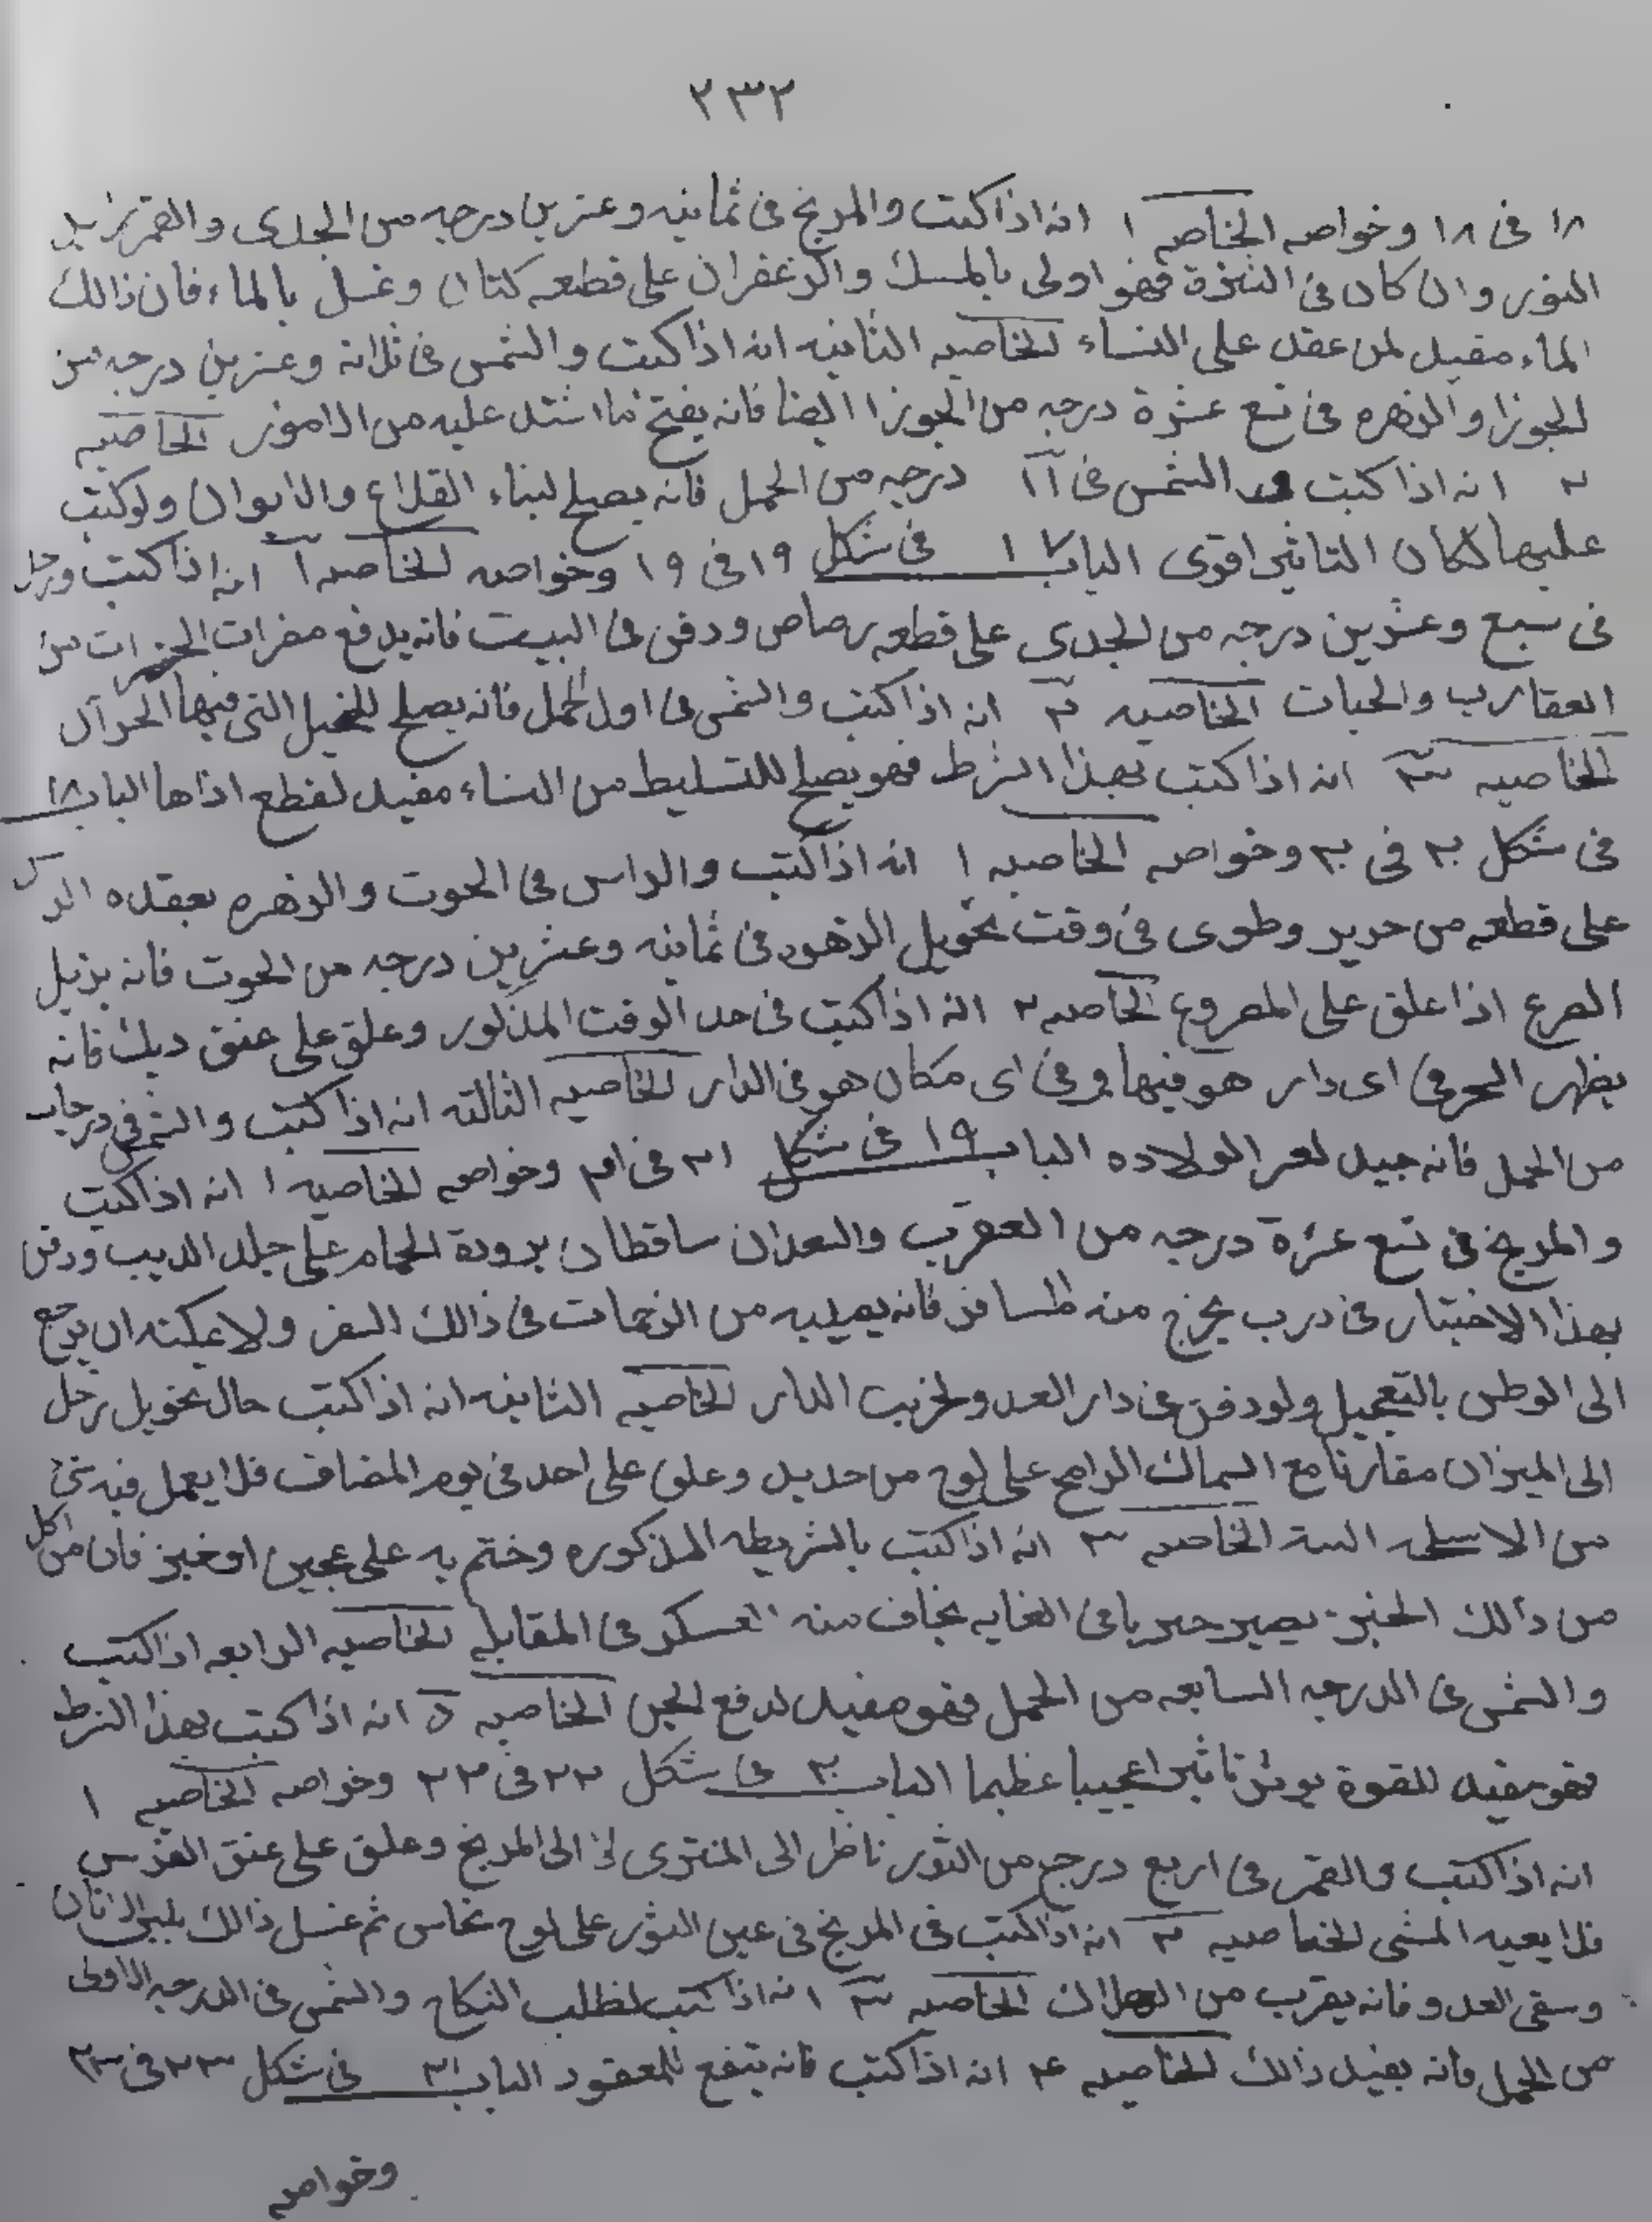 ٢٣٢
١٨ فى ١٨ وخواصه الخاصه ١ انه اذا كتبت والمريخ فى ثمانيه وعشرين درجه من الجدى والقمر يزيد
النور وان كان فى الثور فهو اولى بالمسك والزعفران على قطعه كتان وغسل بالماء فان ذالك
الماء مفيد لمن عقد على النساء الخاصيه الثانيه انه اذا كتبت والشمس فى ثلاثة وعشرين درجه من
الجوزا والزهره فى تسع عشرة درجه من الجوزا ايضا فانه يفتح ما اشتد عليه من الامور الخاصيه
٣ انه اذا كتبت والشمس فى ١٢ درجه من الحمل فانه يصلح لبناء القلاع والايوان ولو كتبت
عليها لكان التاثير اقوى الباب ١٧ فى شكل ١٩ فى ١٩ وخواصه الخاصه ١ انه اذا كتبت وزحل
فى سبع وعشرين درجه من الجدى على قطعه رصاص ودفن فى البيت فانه يدفع مضرات الحشرات من
العقارب والحيات الخاصيه ٢ انه اذا كتبت والشمس فى اول الحمل فانه يصلح للخيل التى فيها الحرآن
الخاصيه ٣ انه اذا كتبت بهذا الشرط فهو يصلح للتسليط من النساء مفيد لقطع اذاها الباب ١٨
فى شكل ٢٠ فى ٢٠ وخواصه الخاصيه ١ انه اذا كتبت والراس فى الحوت والزهره بعقده الر
على قطعه من حرير وطوى فى وقت تحويل الزهره فى ثمانيه وعشرين درجه من الحوت فانه يزيل
الصرع اذا علق على المصروع الخاصه ٢ انه اذا كتبت فى هذ الوقت المذكور وعلق على عنق ديك فانه
يظهر السحر فى اى دار هو فيها وفى اى مكان هو فى الدار الخاصيه الثالثه انه اذا كتبت والشمس فى درجات
من الحمل فانه جيد لعسر الولاده الباب ١٩ فى شكل ٢١ فى ٢١ وخواصه الخاصيه ١ انه اذا كتبت
والمريخ فى تسع عشرة درجه من العقرب والسعدان ساقطان بدودة الحمام على جلد الذيب ودفن
بهذا الاختيار فى درب يخرج منه المسافر فانه يصيبه من الزحمات فى ذالك السفر ولا يمكنه ان يرجع
الى الوطن بالتعجيل ولو دفن فى دار العدو لخربت الدار الخاصيه الثانيه انه اذا كتبت حال تحويل زحل
الى الميزان مقارنا مع السماك الرامح على لوح من حديد وعلق على احد فى يوم المصاف فلا يعمل فيه شئ
من الاسلحه البتة الخاصيه ٣ انه اذا كتبت بالشريطه المذكوره وختم به على عجين او خبز فان من اكل
من ذالك الخبز يصير حربيا فى الغايه يخاف منه العسكر فى المقابله الخاصيه الرابعه اذا كتبت
والشمس فى الدرجه السابعه من الحمل فهو مفيد لدفع الجن الخاصيه ٥ انه اذا كتبت بهذا الشرط
فهو مفيد للقوة يوثر تاثيرا عجيبا عظيما الباب ٢٠ فى شكل ٢٢ فى ٢٢ وخواصه الخاصيه ١
انه اذا كتبت والقمر فى اربع درج من الثور ناظر الى المشترى لا الى المريخ وعلق على عنق الفرس
فلا يعييه المشى الخاصيه ٢ انه اذا كتبت فى المريخ فى عين الثور على لوح نحاس ثم غسل ذالك بلبن الاتان
وسقى العدو فانه يقرب من الهلاك الخاصيه ٣ انه اذا كتبت لطلب النكاح والشمس فى الدرجه الاولى
من الحمل فانه يفيد ذالك الخاصيه ۴ انه اذا كتبت فانه ينفع للمعقود الباب ٢١ فى شكل ٢٣ فى ٢٣
وخواصه